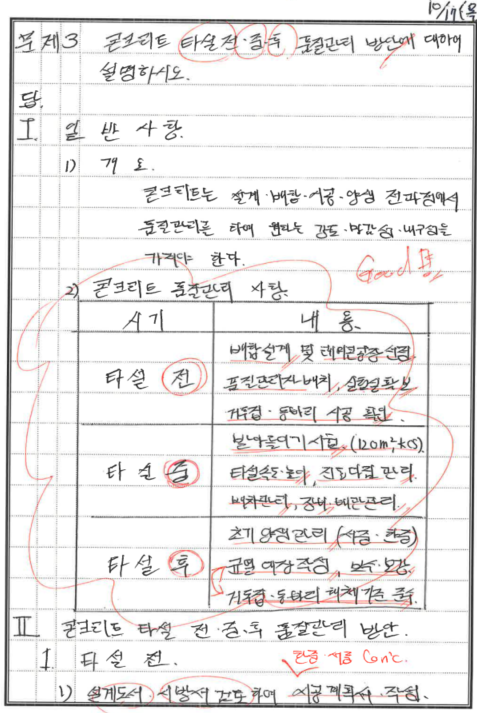 10/17(목
문제3 콘크리트 타설 전·중·후 품질관리 방안에 대하여
설명하시오.
답.
I. 일반사항.
1) 개요.
콘크리트는 설계·배합·시공·양생 전과정에서
품질관리를 하여 원하는 강도·마감성·내구성을
가져야 한다.
Good 표
2) 콘크리트 품질관리 사항.
시기 내용.
배합설계 및 레미콘공장 선정
타설 전 품질관리자 배치, 실험실 확보
거푸집·동바리 시공 확인.
받아들이기 시험. (120m³, KCS)
타설 중 타설속도·높이, 진동다짐 관리.
배차관리, 장비·배관관리.
초기 양생관리 (서중·한중)
타설 후 균열 대장 작성, 보수·보강
거푸집·동바리 해체기준 준수
II 콘크리트 타설 전·중·후 품질관리 방안.
1. 타설 전. 한중·서중 Con'c.
1) 설계도서 시방서 검토하여 시공계획서 작성.